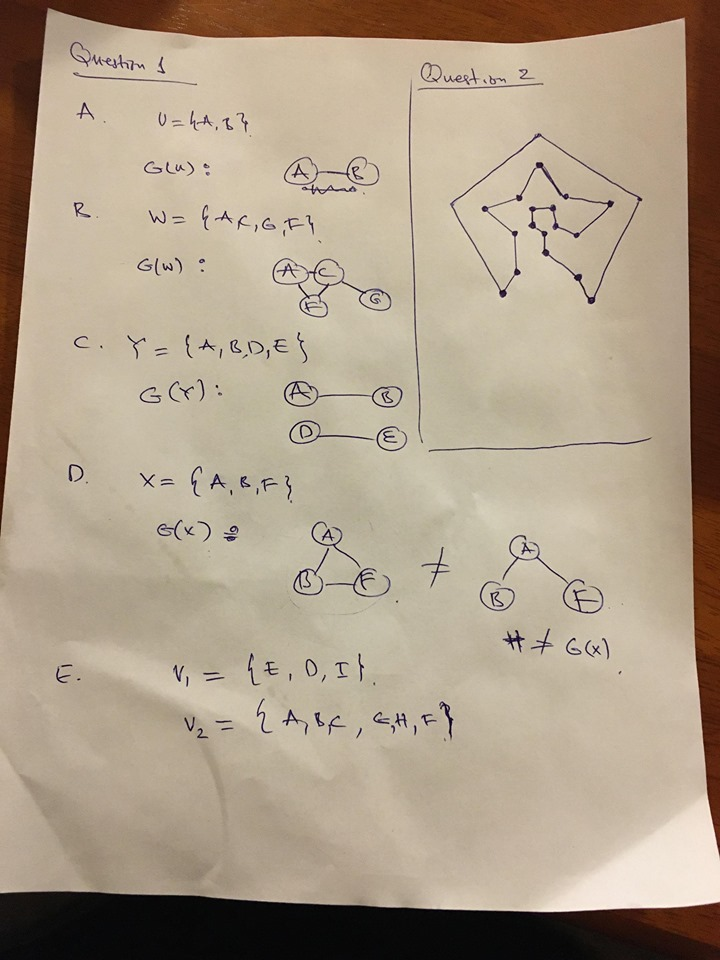 Question 1
A. U = {A, B}
G(u) : A B
B. W = {A C, G, F}
G(W) : A C
F G
C. Y = {A, B, D, E}
G(Y) : A B
D E
D. X = {A, B, F}
G(X) :
A
B F
≠
A
B F
H ≠ G(X)
E. V₁ = {E, D, I}.
V₂ = {A, B, C, G, H, F}
Question 2